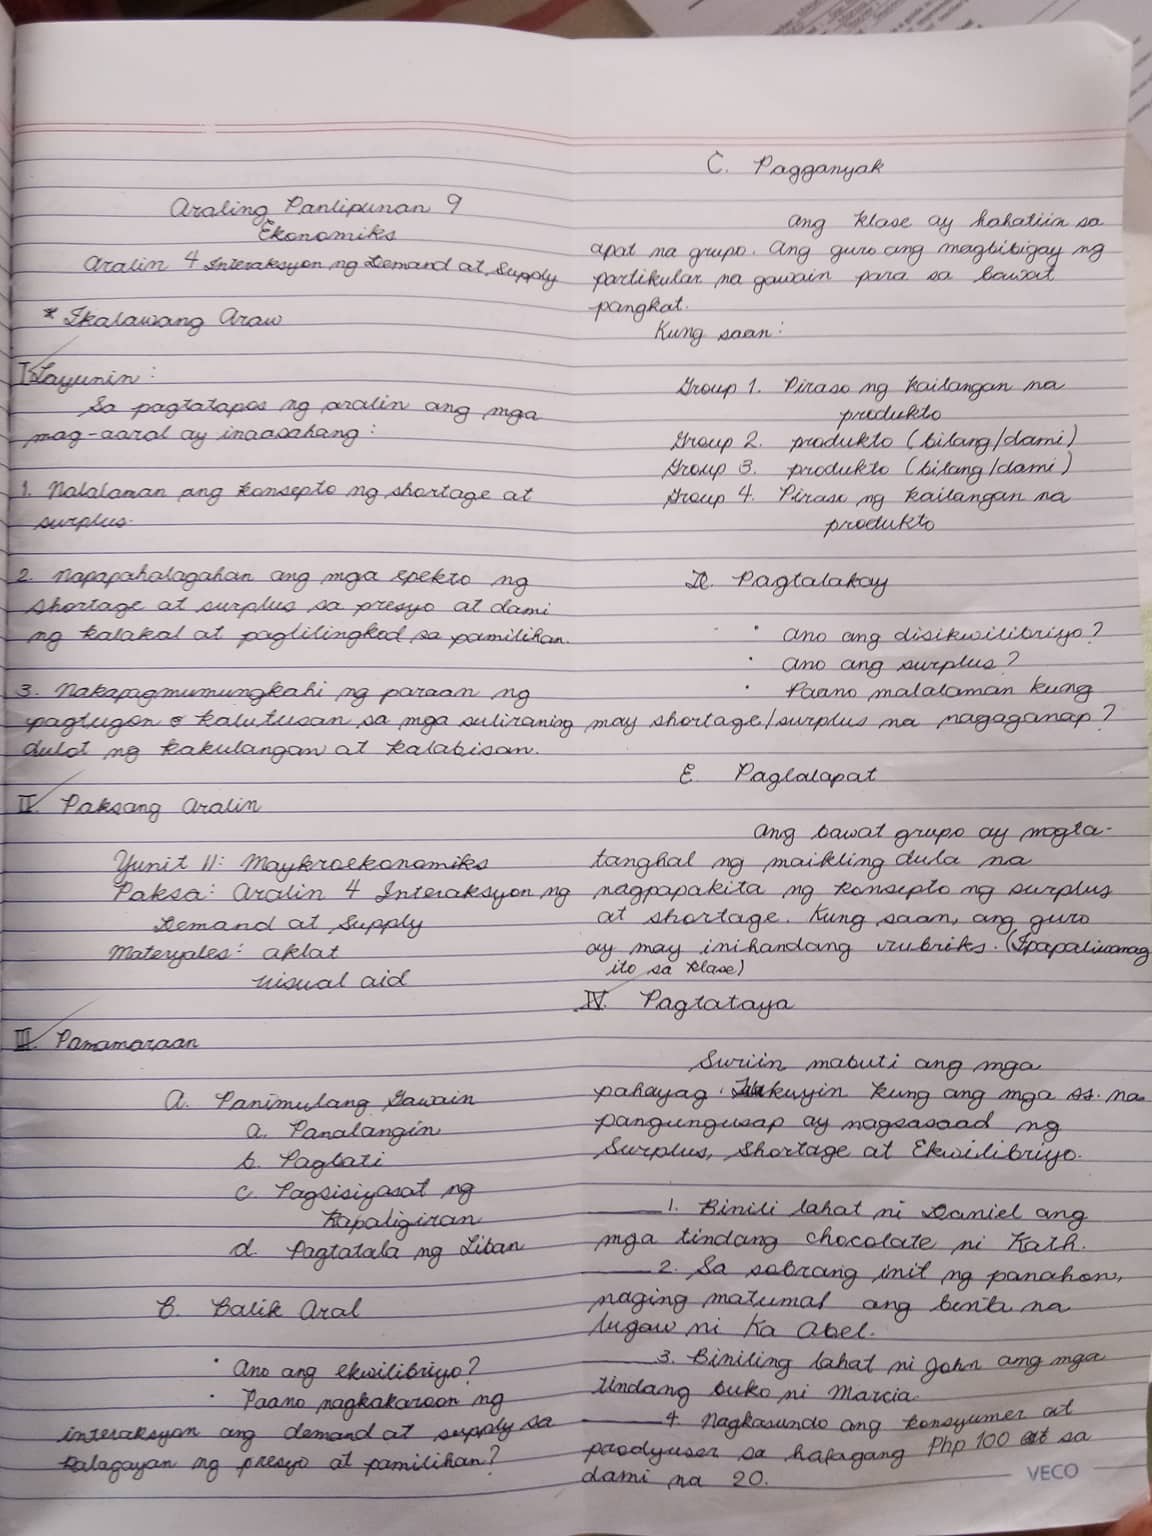 Araling Panlipunan 9
Ekonomiks
Aralin 4 Interaksyon ng Demand at Supply
* Ikalawang Araw
I Layunin :
Sa pagtatapos ng aralin ang mga
mag-aaral ay inaasahang :
1. Nalalaman ang konsepto ng shortage at
surplus.
2. Napapahalagahan ang mga epekto ng
shortage at surplus sa presyo at dami
ng kalakal at paglilingkod sa pamilihan.
3. Nakapagmumungkahi ng paraan ng
pagtugon o kalutusan sa mga suliraning
dulot ng kakulangan at kalabisan.
II. Paksang Aralin
Yunit II: Maykroekonomiks
Paksa: Aralin 4 Interaksyon ng
Demand at Supply
Materyales: aklat
visual aid
III. Pamamaraan
A. Panimulang Gawain
a. Panalangin
b. Pagbati
c. Pagsisiyasat ng
Kapaligiran
d. Pagtatala ng Liban
B. Balik Aral
• Ano ang ekwilibriyo?
• Paano nagkakaroon ng
interaksyon ang demand at supply sa
kalagayan ng presyo at pamilihan?
C. Pagganyak
Ang klase ay hahatiin sa
apat na grupo. Ang guro ang magbibigay ng
partikular na gawain para sa bawat
pangkat.
Kung saan :
Group 1. Piraso ng kailangan na
produkto
Group 2. produkto (bilang/dami)
Group 3. produkto (bilang/dami)
Group 4. Piraso ng kailangan na
produkto
D. Pagtalakay
• Ano ang disikwilibriyo?
• Ano ang surplus?
• Paano malalaman kung
may shortage/surplus na nagaganap?
E. Paglalapat
Ang bawat grupo ay magta-
tanghal ng maikling dula na
nagpapakita ng konsepto ng surplus
at shortage. Kung saan, ang guro
ay may inihandang rubriks. (Ipapaliwanag
ito sa klase)
IV. Pagtataya
Suriin mabuti ang mga
pahayag. Tukuyin kung ang mga ss. na
pangungusap ay nagsasaad ng
Surplus, Shortage at Ekwilibriyo.
______1. Binili lahat ni Daniel ang
mga tindang chocolate ni Kath.
______2. Sa sobrang init ng panahon,
naging matumal ang benta na
lugaw ni Ka Abel.
______3. Biniling lahat ni John ang mga
tindang buko ni Marcia.
______4. Nagkasundo ang konsyumer at
prodyuser sa halagang Php 100 at sa
dami na 20.
VECO